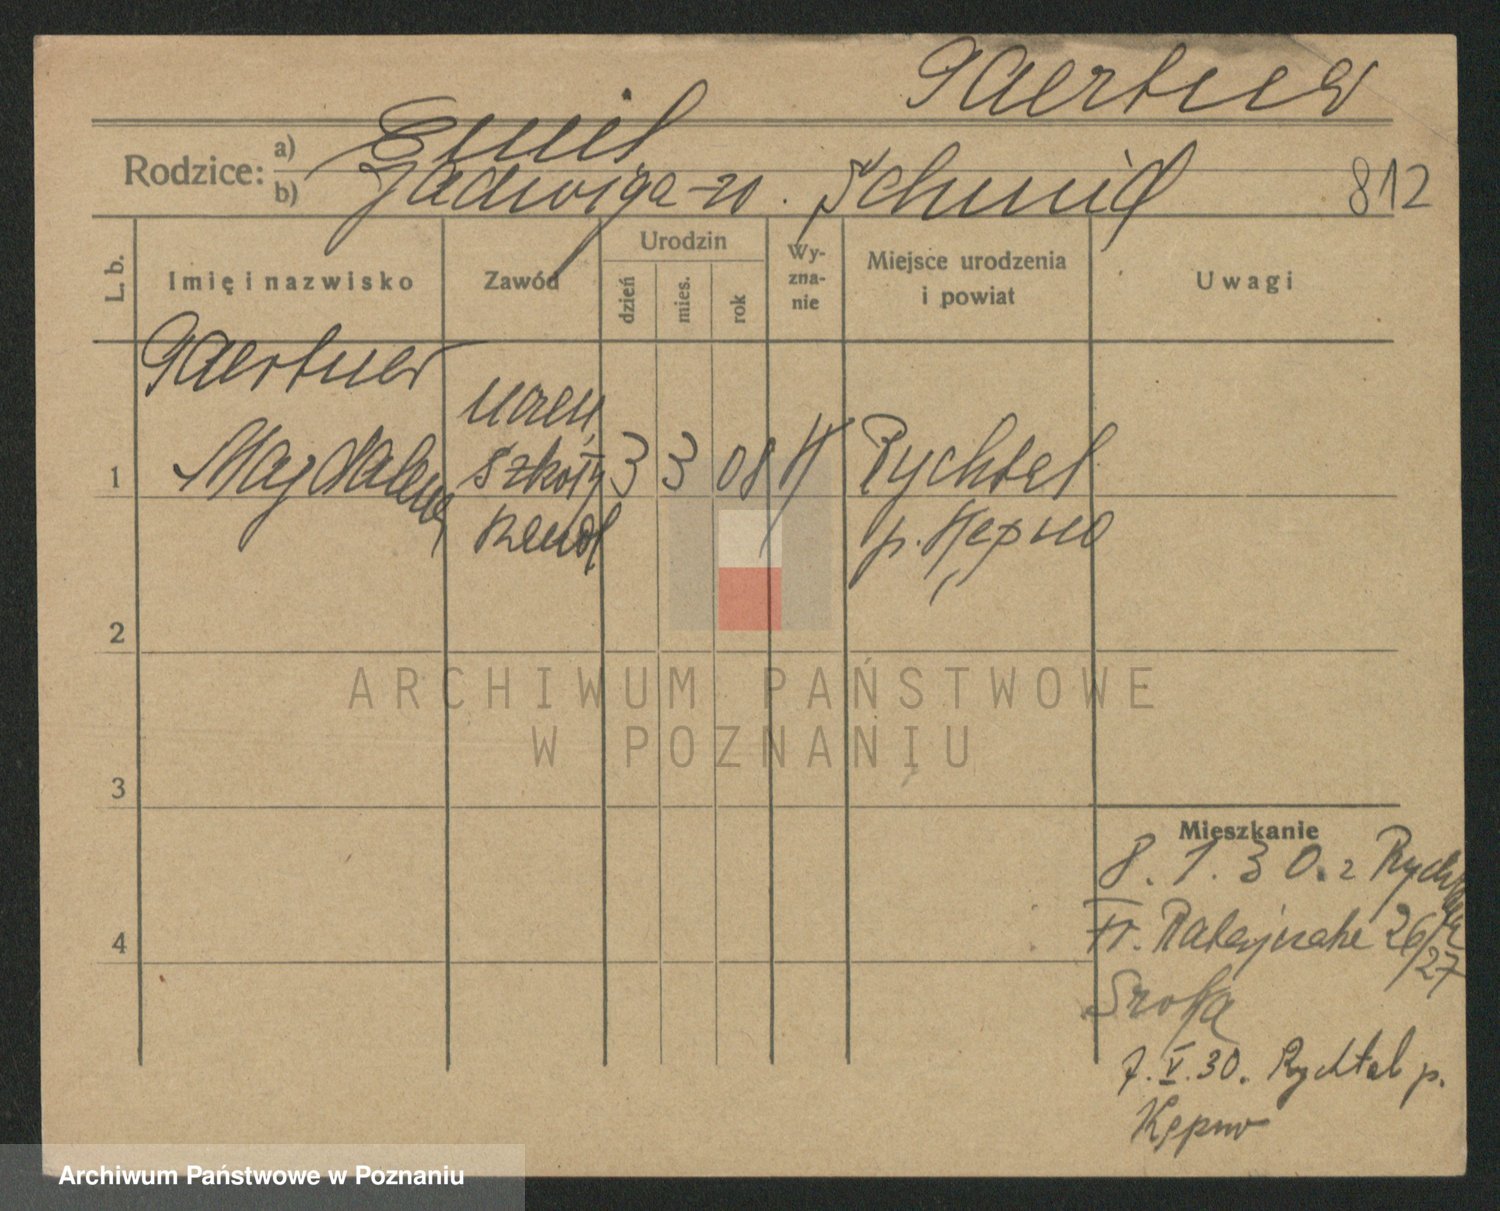 Gaertner
Rodzice: a) Emil
b) Jadwiga z d. Schmid 812
L. b. Imię i nazwisko Zawód Urodzin dzień mies. rok Wyznanie Miejsce urodzenia i powiat Uwagi
Gaertner
1 Magdalena uczen. szkoły handl 3 3 08 Rychtal
p. Kępno
2
ARCHIWUM PAŃSTWOWE
W POZNANIU
3
Mieszkanie
8. 1. 30. z Rychtal
4 Fr. Ratajczaka 26/27
Sroka
7. V. 30. Rychtal p.
Kępno
Archiwum Państwowe w Poznaniu